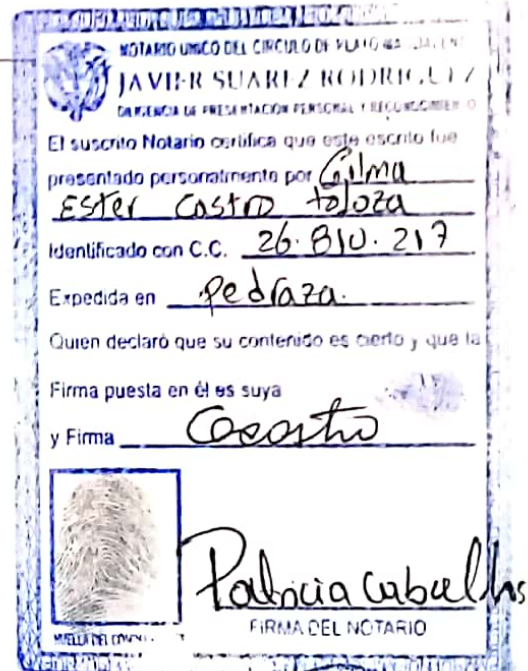 NOTARIO UNICO DEL CIRCULO DE PLATO
JAVIER SUAREZ RODRIGUEZ
DILIGENCIA DE PRESENTACIÓN PERSONAL Y RECONOCIMIENTO
El suscrito Notario certifica que este escrito fue
presentado personalmente por Gilma
Ester Castro toloza
Identificado con C.C. 26.810.217
Expedida en Pedraza.
Quien declaró que su contenido es cierto y que la
Firma puesta en él es suya
y Firma
Patricia Caballos
FIRMA DEL NOTARIO
HUELLA DEL